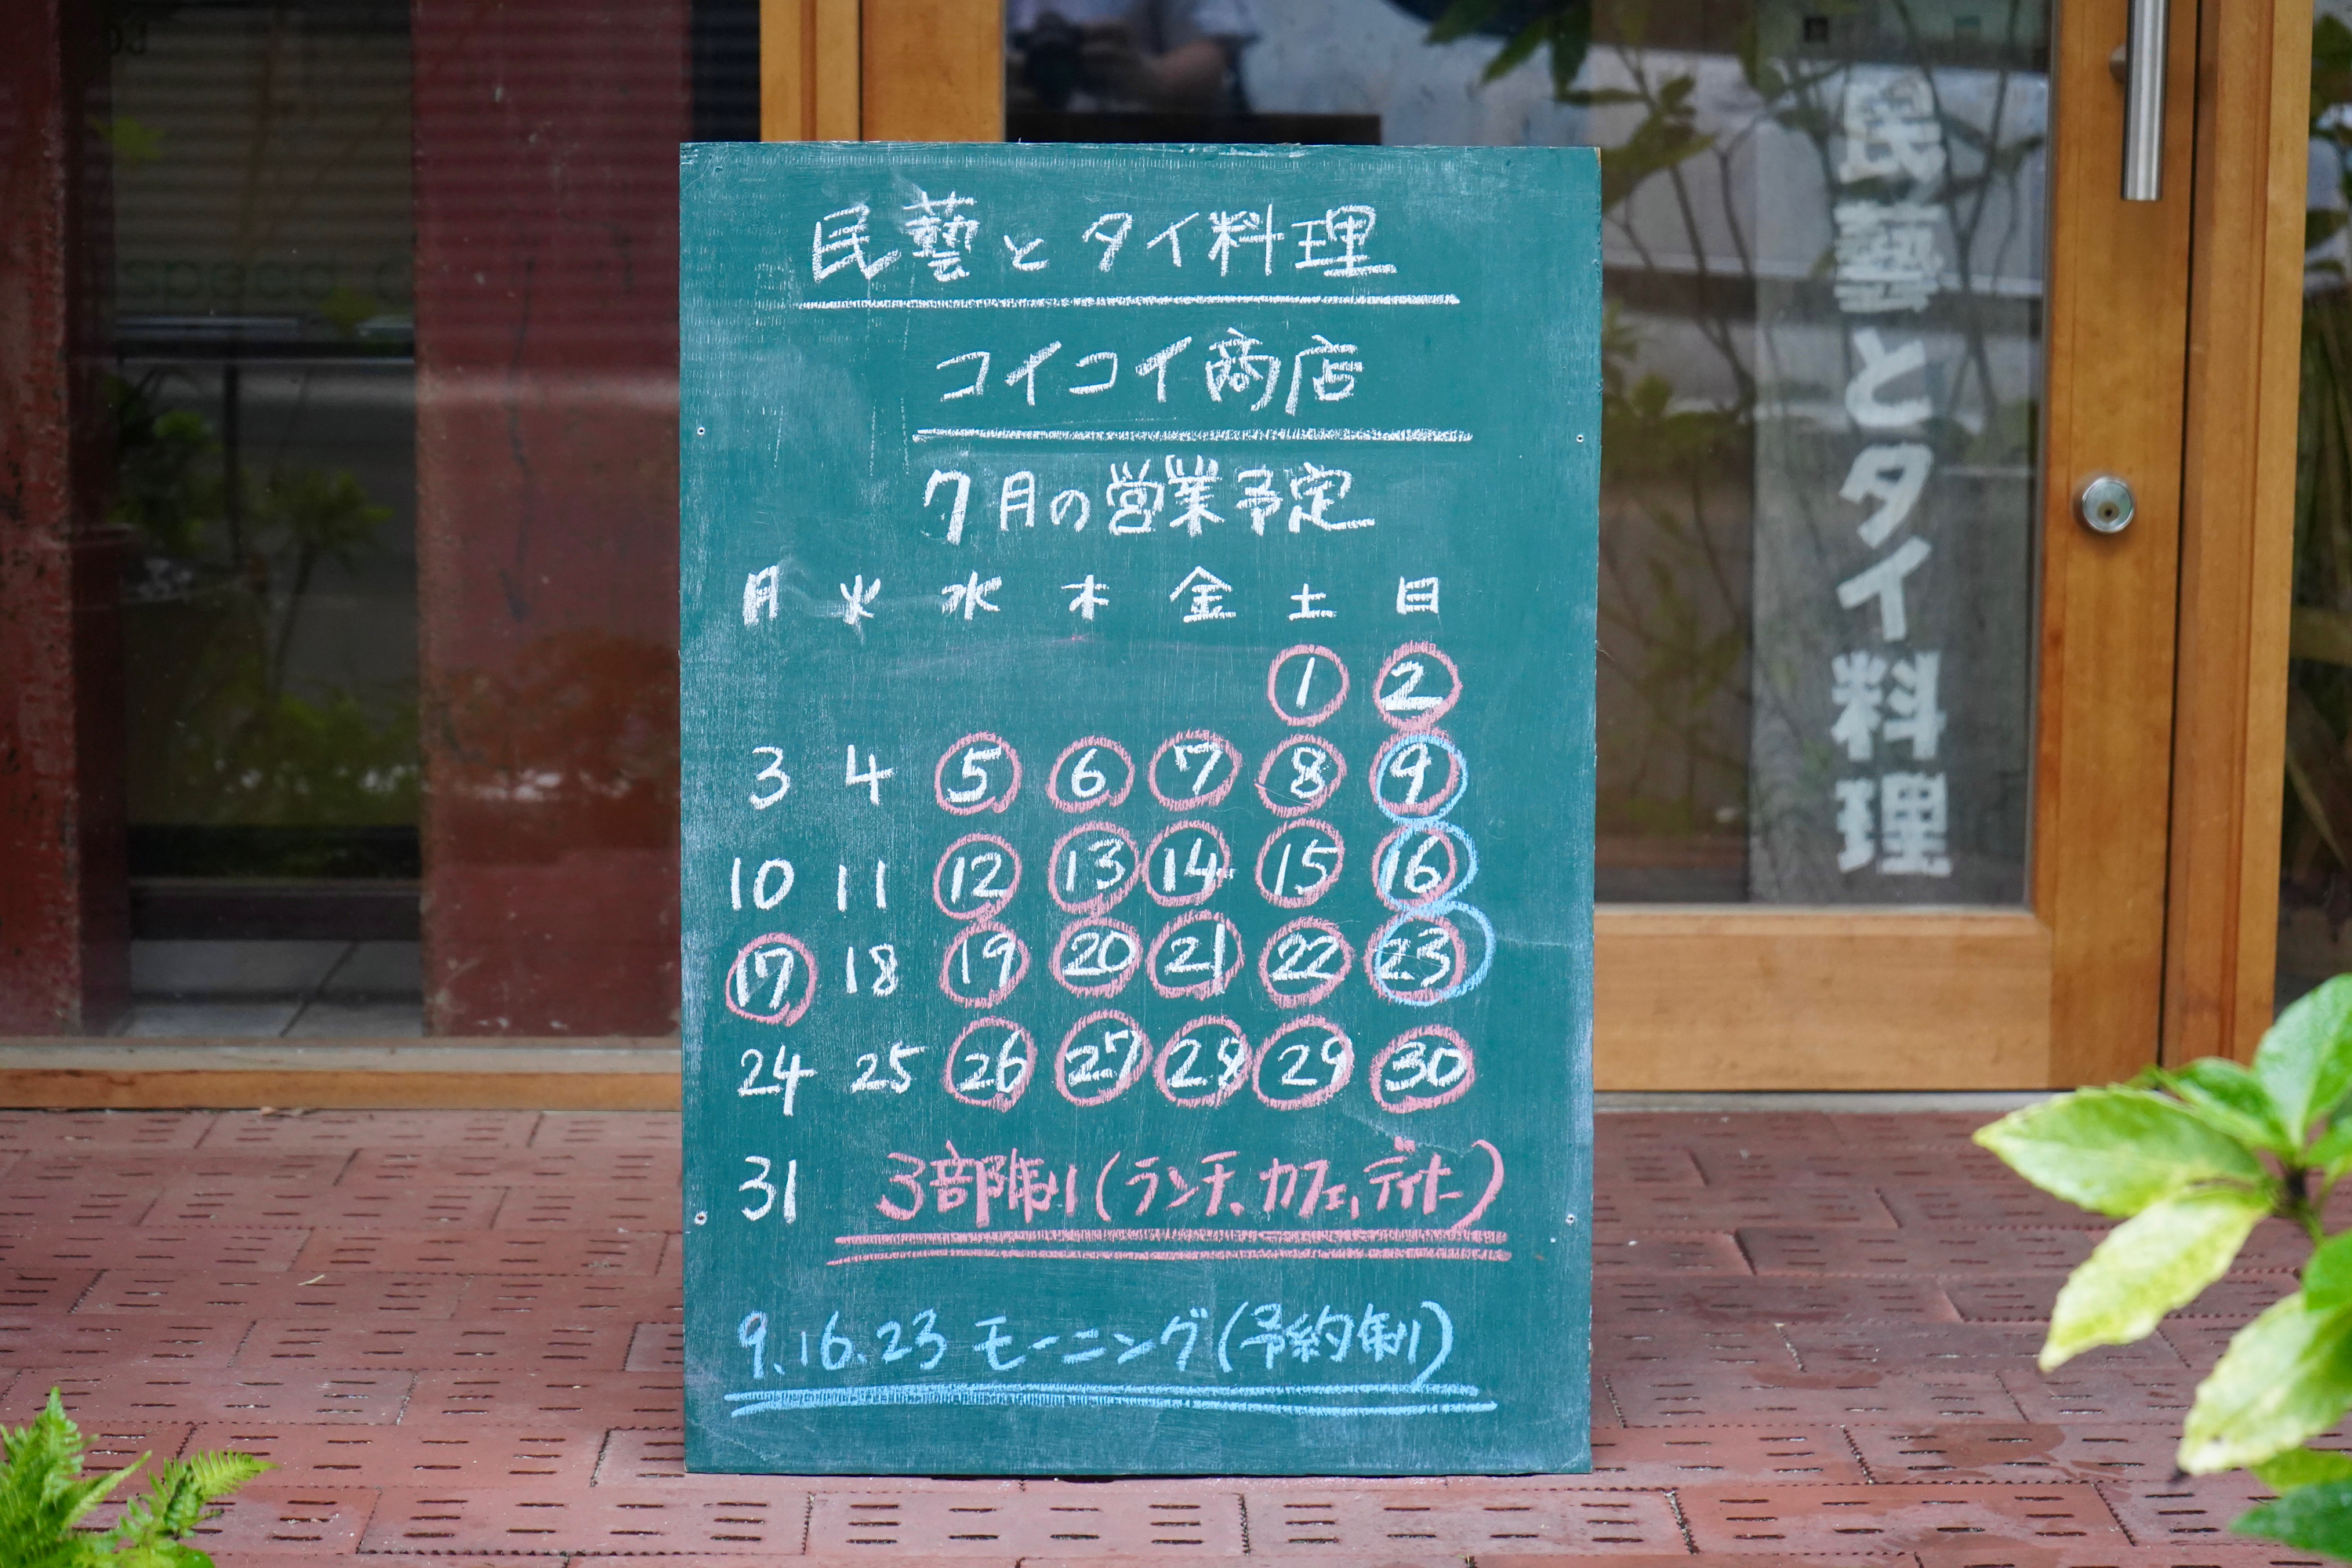 民藝とタイ料理
コイコイ商店
7月の営業予定
月 火 水 木 金 土 日
1 2
3 4 5 6 7 8 9
10 11 12 13 14 15 16
17 18 19 20 21 22 23
24 25 26 27 28 29 30
31 3部制(ランチ、カフェ、ディナー)
9.16.23 モーニング(予約制)
民藝とタイ料理